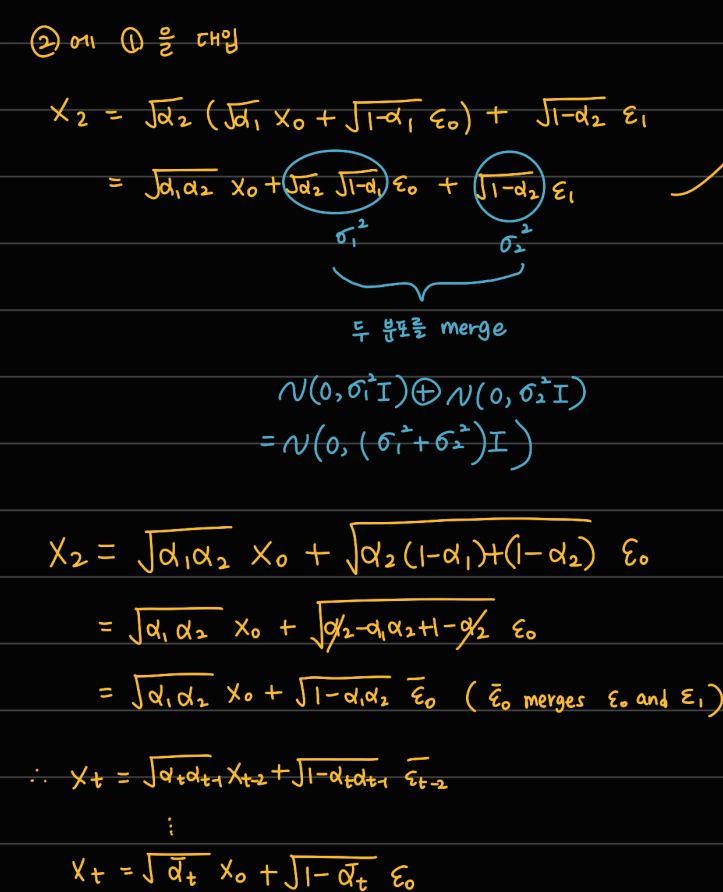 ② 에 ① 을 대입
X₂ = √α₂ (√α₁ X₀ + √(1-α₁) ε₀) + √(1-α₂) ε₁
= √(α₁α₂) X₀ + √α₂ √(1-α₁) ε₀ + √(1-α₂) ε₁
σ₁² σ₂²
두 분포를 merge
N(0, σ₁²I) ⊕ N(0, σ₂²I)
= N(0, (σ₁²+σ₂²)I)
X₂ = √(α₁α₂) X₀ + √(α₂(1-α₁)+(1-α₂)) ε₀
= √(α₁α₂) X₀ + √(α₂-α₁α₂+1-α₂) ε₀
= √(α₁α₂) X₀ + √(1-α₁α₂) ε̄₀ ( ε̄₀ merges ε₀ and ε₁)
∴ Xt = √(αtαt-1) Xt-2 + √(1-αtαt-1) ε̄t-2
⋮
Xt = √ᾱt X₀ + √(1-ᾱt) ε₀